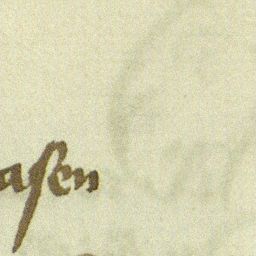 aſen